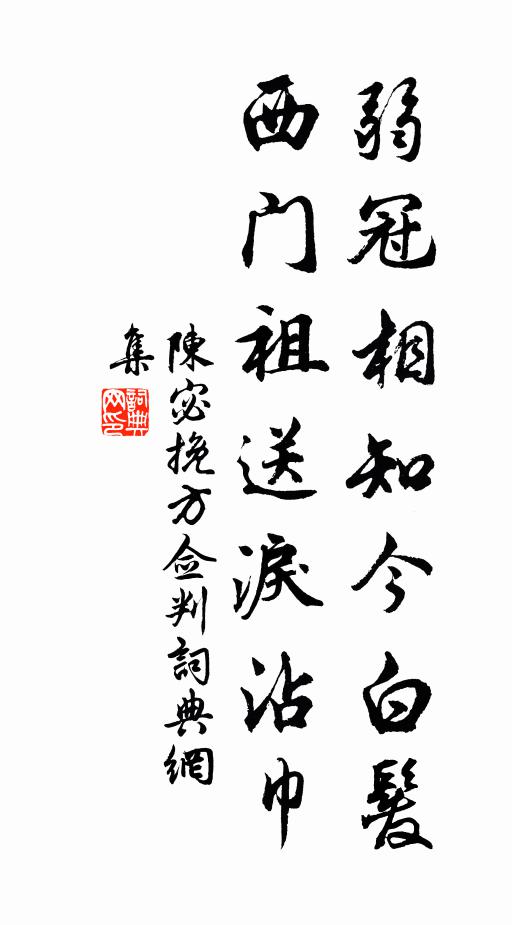 弱冠相知今白髮
西门祖送淚沾巾
陳宓挽方佥判詞典網
集
詞典
网印